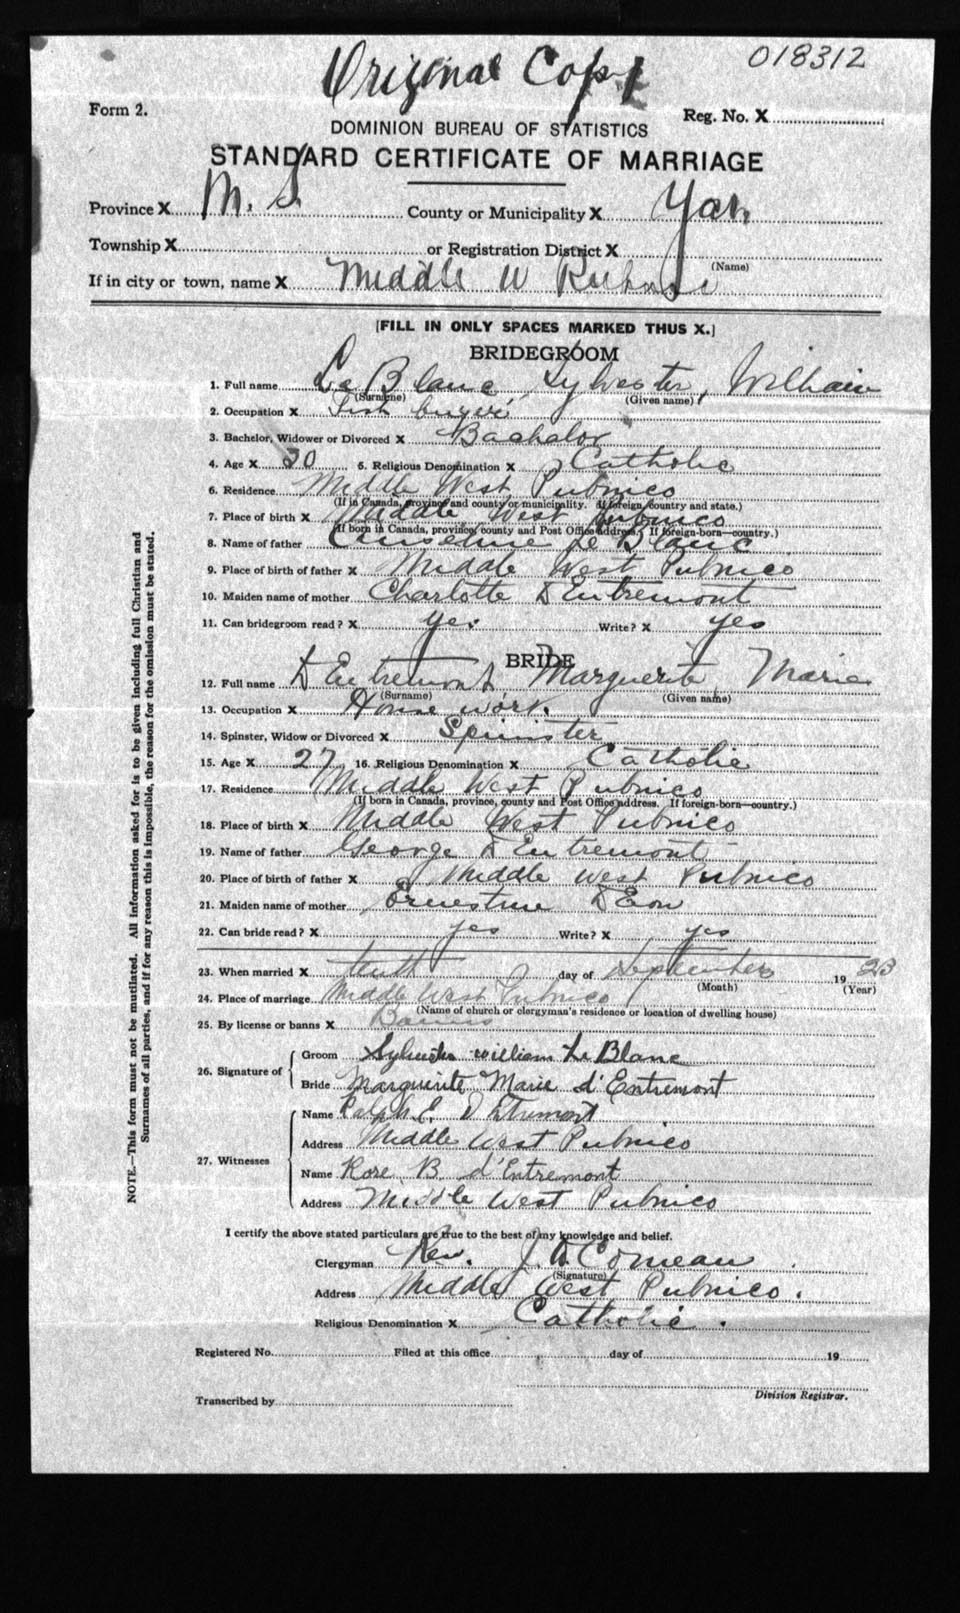 Original Copy
018312
Form 2.
Reg. No. X
DOMINION BUREAU OF STATISTICS
STANDARD CERTIFICATE OF MARRIAGE
Province X N. S. County or Municipality X Yar.
Township X or Registration District X
(Name)
If in city or town, name X Middle W Pubnico
[FILL IN ONLY SPACES MARKED THUS X.]
BRIDEGROOM
1. Full name Le Blanc Sylvester, William
(Surname) (Given name)
2. Occupation X Fish buyer
3. Bachelor, Widower or Divorced X Bachelor
4. Age X 30 5. Religious Denomination X Catholic
6. Residence Middle West Pubnico
(If in Canada, province and county or municipality. If foreign, country and state.)
7. Place of birth X Middle West Pubnico
(If born in Canada, province, county and Post Office address. If foreign-born—country.)
8. Name of father Le Blanc
9. Place of birth of father X Middle West Pubnico
10. Maiden name of mother Charlotte D Entremont
11. Can bridegroom read? X yes Write? X yes
BRIDE
12. Full name D Entremont, Marguerite Marie
(Surname) (Given name)
13. Occupation X House work
14. Spinster, Widow or Divorced X Spinster
15. Age X 27 16. Religious Denomination X Catholic
17. Residence Middle West Pubnico
(If born in Canada, province, county and Post Office address. If foreign-born—country.)
18. Place of birth X Middle West Pubnico
19. Name of father George D Entremont
20. Place of birth of father X Middle West Pubnico
21. Maiden name of mother Ernestine D Eon
22. Can bride read? X yes Write? X yes
23. When married X tenth day of September 19 23
(Month) (Year)
24. Place of marriage Middle West Pubnico
(Name of church or clergyman's residence or location of dwelling house)
25. By license or banns X Banns
26. Signature of
Groom Sylvester william Le Blanc
Bride Marguerite Marie d'Entremont
27. Witnesses
Name Ralph E. D Entremont
Address Middle West Pubnico
Name Rose B. d'Entremont
Address Middle West Pubnico
I certify the above stated particulars are true to the best of my knowledge and belief.
Clergyman Rev. J. D. Comeau
(Signature)
Address Middle West Pubnico.
Religious Denomination X Catholic.
Registered No. Filed at this office day of 19
Division Registrar.
Transcribed by
NOTE.—This form must not be mutilated. All information asked for is to be given including full Christian and
Surnames of all parties, and if for any reason this is impossible, the reason for the omission must be stated.